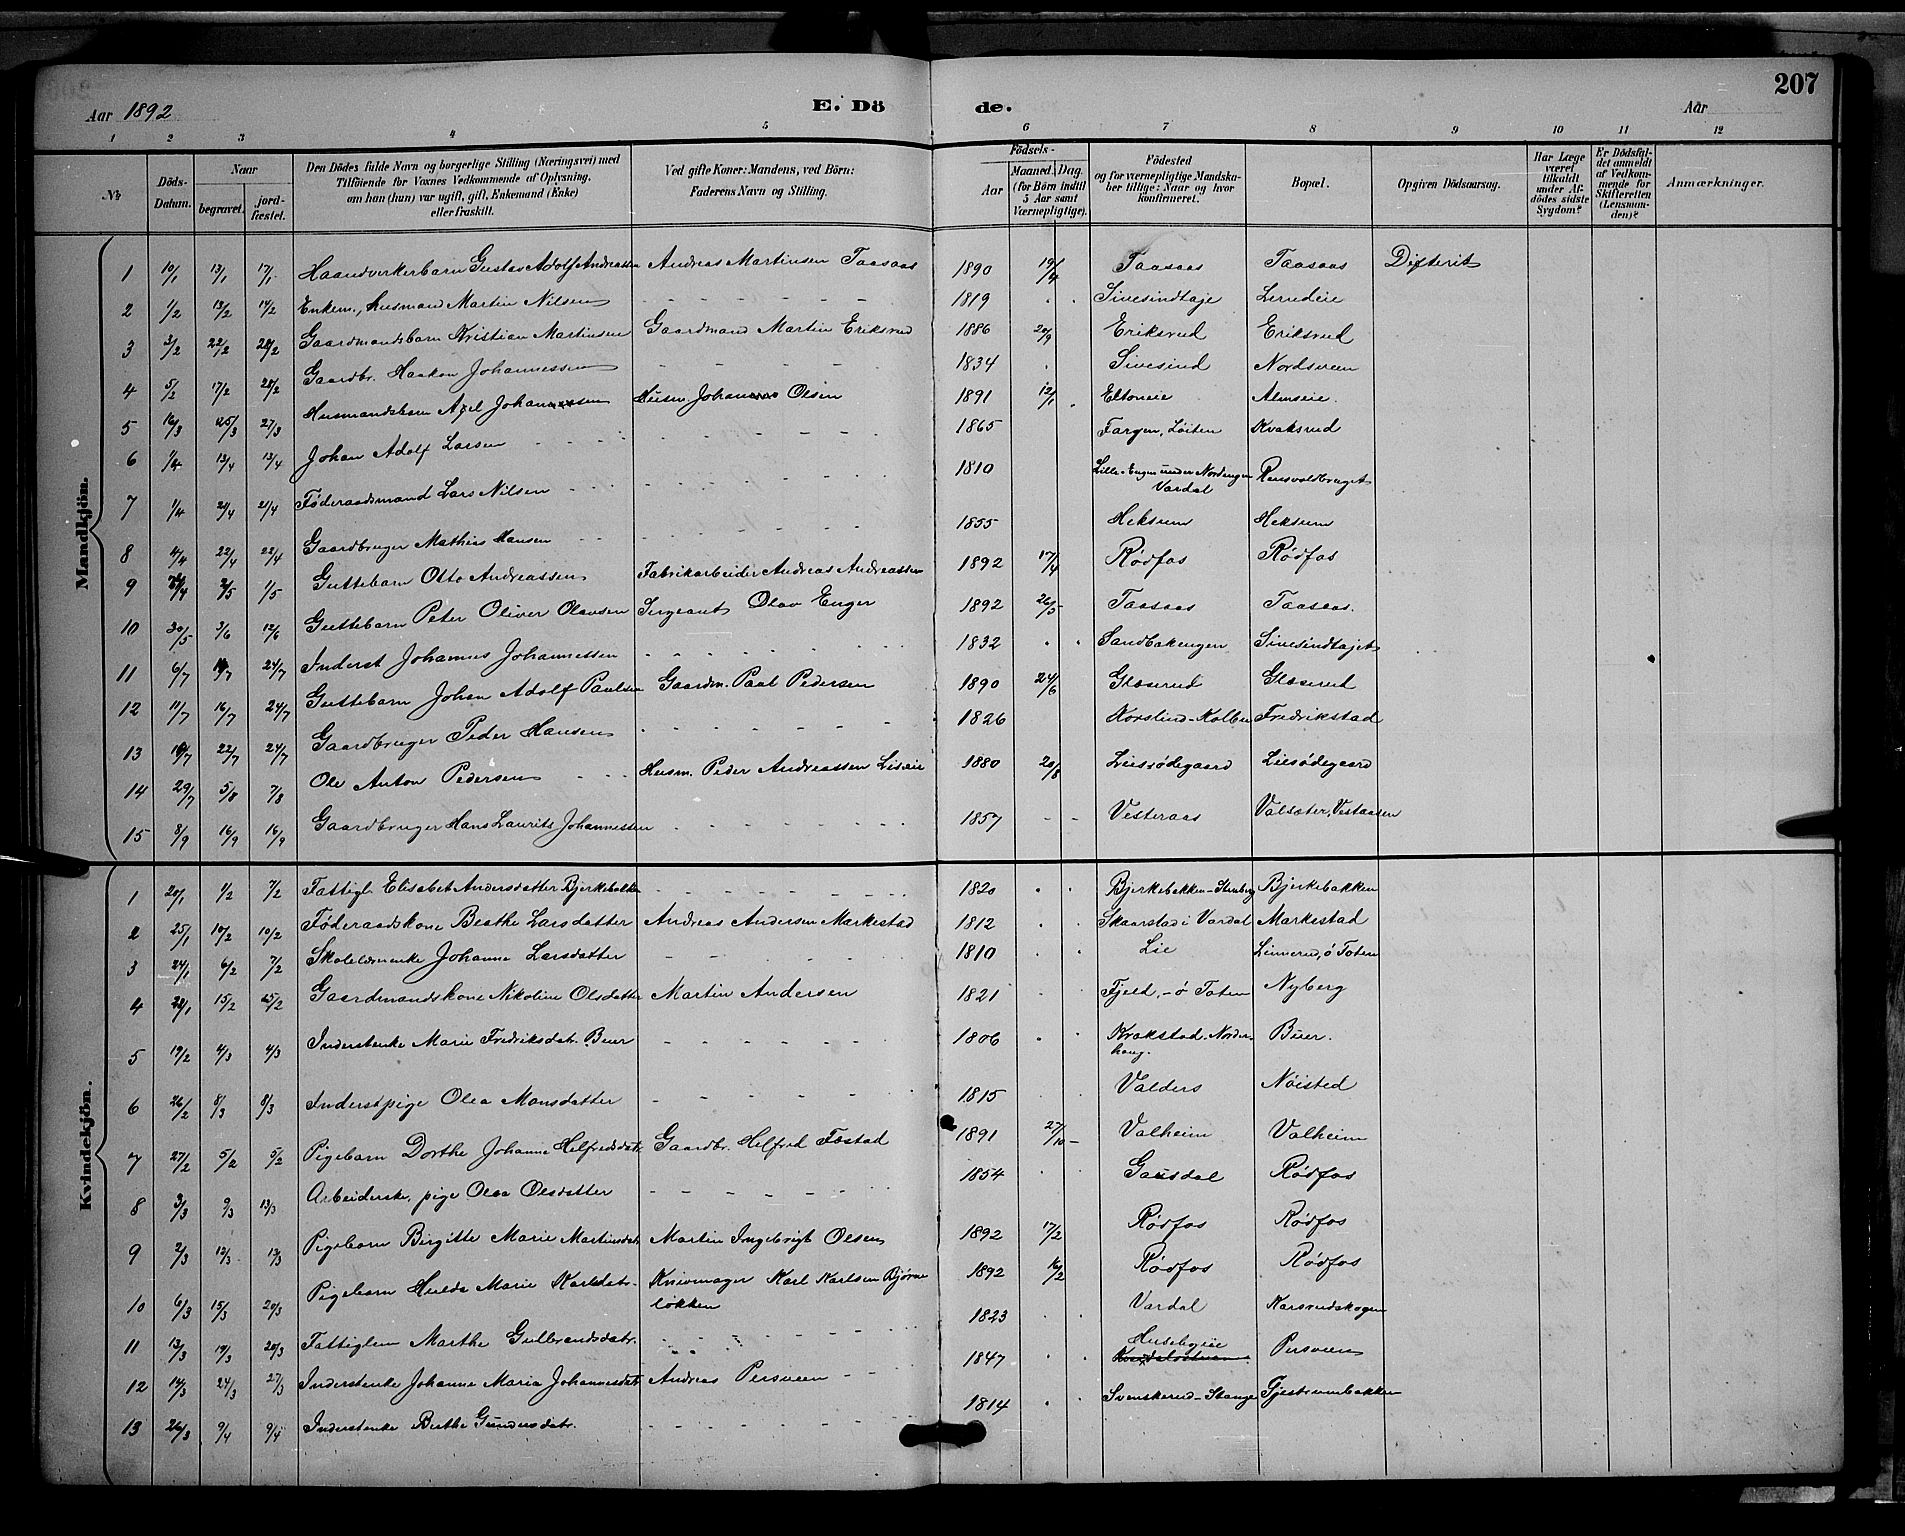 207
Aar 1892 E. Dö de. Aar
1 2 3 4 5 6 7 8 9 10 11 12
No Döds-Datum. Naar begravet. jord-fæstet. Den Dødes fulde Navn og borgerlige Stilling (Næringsvei) med Tilföiende for Voxnes Vedkommende af Oplysning, om han (hun) var ugift, gift, Enkemand (Enke) eller fraskilt. Ved gifte Koner: Mandens, ved Börn: Faderens Navn og Stilling. Födsels- Aar Maaned. Dag. (for Börn indtil 5 Aar samt Værnepligtige). Födested og for værnepligtige Mandskaber tillige: Naar og hvor konfirmeret. Bopæl. Opgiven Dödsaarsag. Har Læge været tilkaldt under Afdödes sidste Sygdom? Er Dödsfaldet anmeldt af Vedkommende for Skifteretten (Lensmanden)? Anmærkninger.
Mandkjön.
1 10/1 13/1 17/1 Haandverkerbarn Gustav Adolf Andreassen Andreas Martinsen Taasaas 1890 19/4 Taasaas Taasaas Difterit
2 1/2 13/2 14/2 Enkem., Husmand Martin Nilsen 1819 Sivesindtaje Lundeie
3 3/2 22/2 28/2 Gaardmandsbarn Kristian Martinsen Gaardmand Martin Eriksrud 1886 20/9 Eriksrud Eriksrud
4 5/2 17/2 28/2 Gaardbr. Haakon Johannessen 1834 Sivesind Nordsveen
5 16/3 25/3 27/3 Husmandsbarn Axel Johansen Husm. Johan Olsen 1891 12/1 Eltoneie Almseie.
6 1/4 13/4 13/4 Johan Adolf Larsen 1865 Fargen, Løiten Kvaksrud
7 1/4 21/4 21/4 Føderaadsmand Lars Nilsen 1810 Lille-Engen under Nordengen Vardal Rensvoldbruget
8 4/4 22/4 22/4 Gaardbruger Mathias Hansen 1855 Heksum Heksum
9 3/5 1/5 Guttebarn Otto Andreassen Fabrikarbeider Andreas Andreassen 1892 17/4 Rødfos Rødfos
10 30/5 3/6 12/6 Guttebarn Peter Oliver Olavsen Sergeant Olav Enger 1892 26/5 Taasaas Taasaas.
11 6/7 24/7 Inderst Johannes Johannessen 1832 Sandbakengen Sivesindtajet
12 11/7 16/7 24/7 Guttebarn Johan Adolf Paulsen Gaardm. Paul Pedersen 1890 24/6 Glæserud Glæserud
13 22/7 24/7 Gaardbruger Peder Hansen 1826 Korslund-Kolbu Fredrikstad
14 29/7 5/8 7/8 Ole Anton Pedersen Husm. Peder Andreassen Lieeie 1880 20/8 Lieseødegaard Lieødegaard
15 8/9 16/9 16/9 Gaardbruger Hans Laurits Johannessen 1857 Vesteraas Valsæter, Vestaasen
Kvindekjön.
1 20/1 1/2 7/2 Fattigl. Elisabet Andersdatter Bjerkebakken 1820 Bjerkebakken-Stenberg Bjerkebakken
2 25/1 10/2 10/2 Føderaadskone Berthe Larsdatter Andreas Andersen Markestad 1812 Skaarstad i Vardal Markestad
3 24/1 6/2 7/2 Skolelærerenke Johanne Larsdatter 1810 Lie Linnerud, ø Toten
4 22/1 15/2 25/2 Gaardmandskone Nikoline Olsdatter Martin Andersen 1821 Fjeld, - ø Toten Nyberg
5 19/2 4/3 4/3 Inderstenke Marie Fredriksdatr. Buer 1806 Krakstad. Norderhaug. Buer.
6 26/2 8/3 8/3 Inderstpige Olea Monsdatter 1815 Valders Nøisted
7 27/2 5/2 5/2 Pigebarn Dorthe Johanne Helfredsdatr. Gaardbr. Helfred Fæstad 1891 27/10 Valheim Valheim
8 3/3 9/3 13/3 Arbeiderske, pige Olea Olsdatter 1854 Gausdal Rødfos
9 2/3 12/3 13/3 Pigebarn Birgitte Marie Martinsdatr. Martin Ingebrigt Olsen 1892 17/2 Rødfos Rødfos
10 6/3 15/3 20/3 Pigebarn Hulda Marie Karlsdatr. Knivmager Karl Karlsen Bjørneløkken 1892 16/2 Rødfos Rødfos
11 13/3 19/3 20/3 Fattiglem Marthe Gulbrandsdatr. 1823 Vardal Karsrudskogen
12 14/3 24/3 27/3 Inderstenke Johanne Maria Johannesdatr. Andreas Persveen 1847 Husebyeie Persveen
13 26/3 9/4 9/4 Inderstenke Berthe Gundersdatr. 1814 Svenskerud-Stange Fjestumbakken